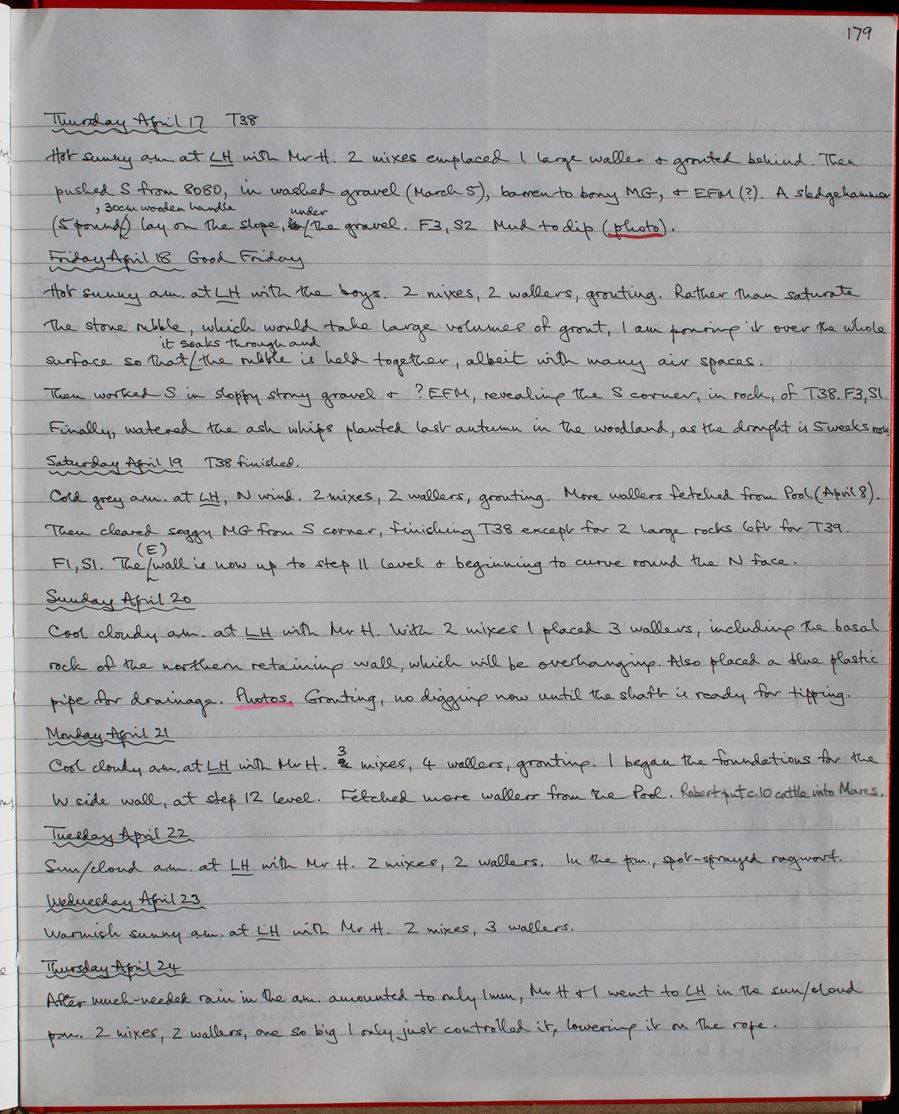 179
Thursday April 17 T38
Hot sunny am. at LH with Mr H. 2 mixes emplaced 1 large waller & grouted behind. Then
pushed S from 8080, in washed gravel (March 5), barren to bony MG, & EFM (?). A sledgehammer
, 30cm wooden handle under
(5 pound) lay on the slope, the gravel. F3, S2 Mud to dip (photo).
Friday April 18 Good Friday
Hot sunny am. at LH with the boys. 2 mixes, 2 wallers, grouting. Rather than saturate
the stone rubble, which would take large volumes of grout, I am pouring it over the whole
it soaks through and
surface so that the rubble is held together, albeit with many air spaces.
Then worked S in sloppy stony gravel & ? EFM, revealing the S corner, in rock, of T38. F3, S1.
Finally, watered the ash whips planted last autumn in the woodland, as the drought is 5 weeks now.
Saturday April 19 T38 finished.
Cold grey am. at LH, N wind. 2 mixes, 2 wallers, grouting. More wallers fetched from Pool (April 8).
Then cleared soggy MG from S corner, finishing T38 except for 2 large rocks left for T39.
(E)
F1, S1. The wall is now up to step 11 level & beginning to curve round the N face.
Sunday April 20
Cool cloudy am. at LH with Mr H. With 2 mixes I placed 3 wallers, including the basal
rock of the northern retaining wall, which will be overhanging. Also placed a blue plastic
pipe for drainage. Photos. Grouting, no digging now until the shaft is ready for tipping.
Monday April 21
Cool cloudy am. at LH with Mr H. 3 mixes, 4 wallers, grouting. I began the foundations for the
W side wall, at step 12 level. Fetched more wallers from the Pool. Robert put c.10 cattle into Mares.
Tuesday April 22
Sun/cloud am. at LH with Mr H. 2 mixes, 2 wallers. In the pm., spot-sprayed ragwort.
Wednesday April 23
Warmish sunny am. at LH with Mr H. 2 mixes, 3 wallers.
Thursday April 24
After much-needed rain in the am. amounted to only 1mm, Mr H & I went to LH in the sun/cloud
pm. 2 mixes, 2 wallers, one so big I only just controlled it, lowering it on the rope.